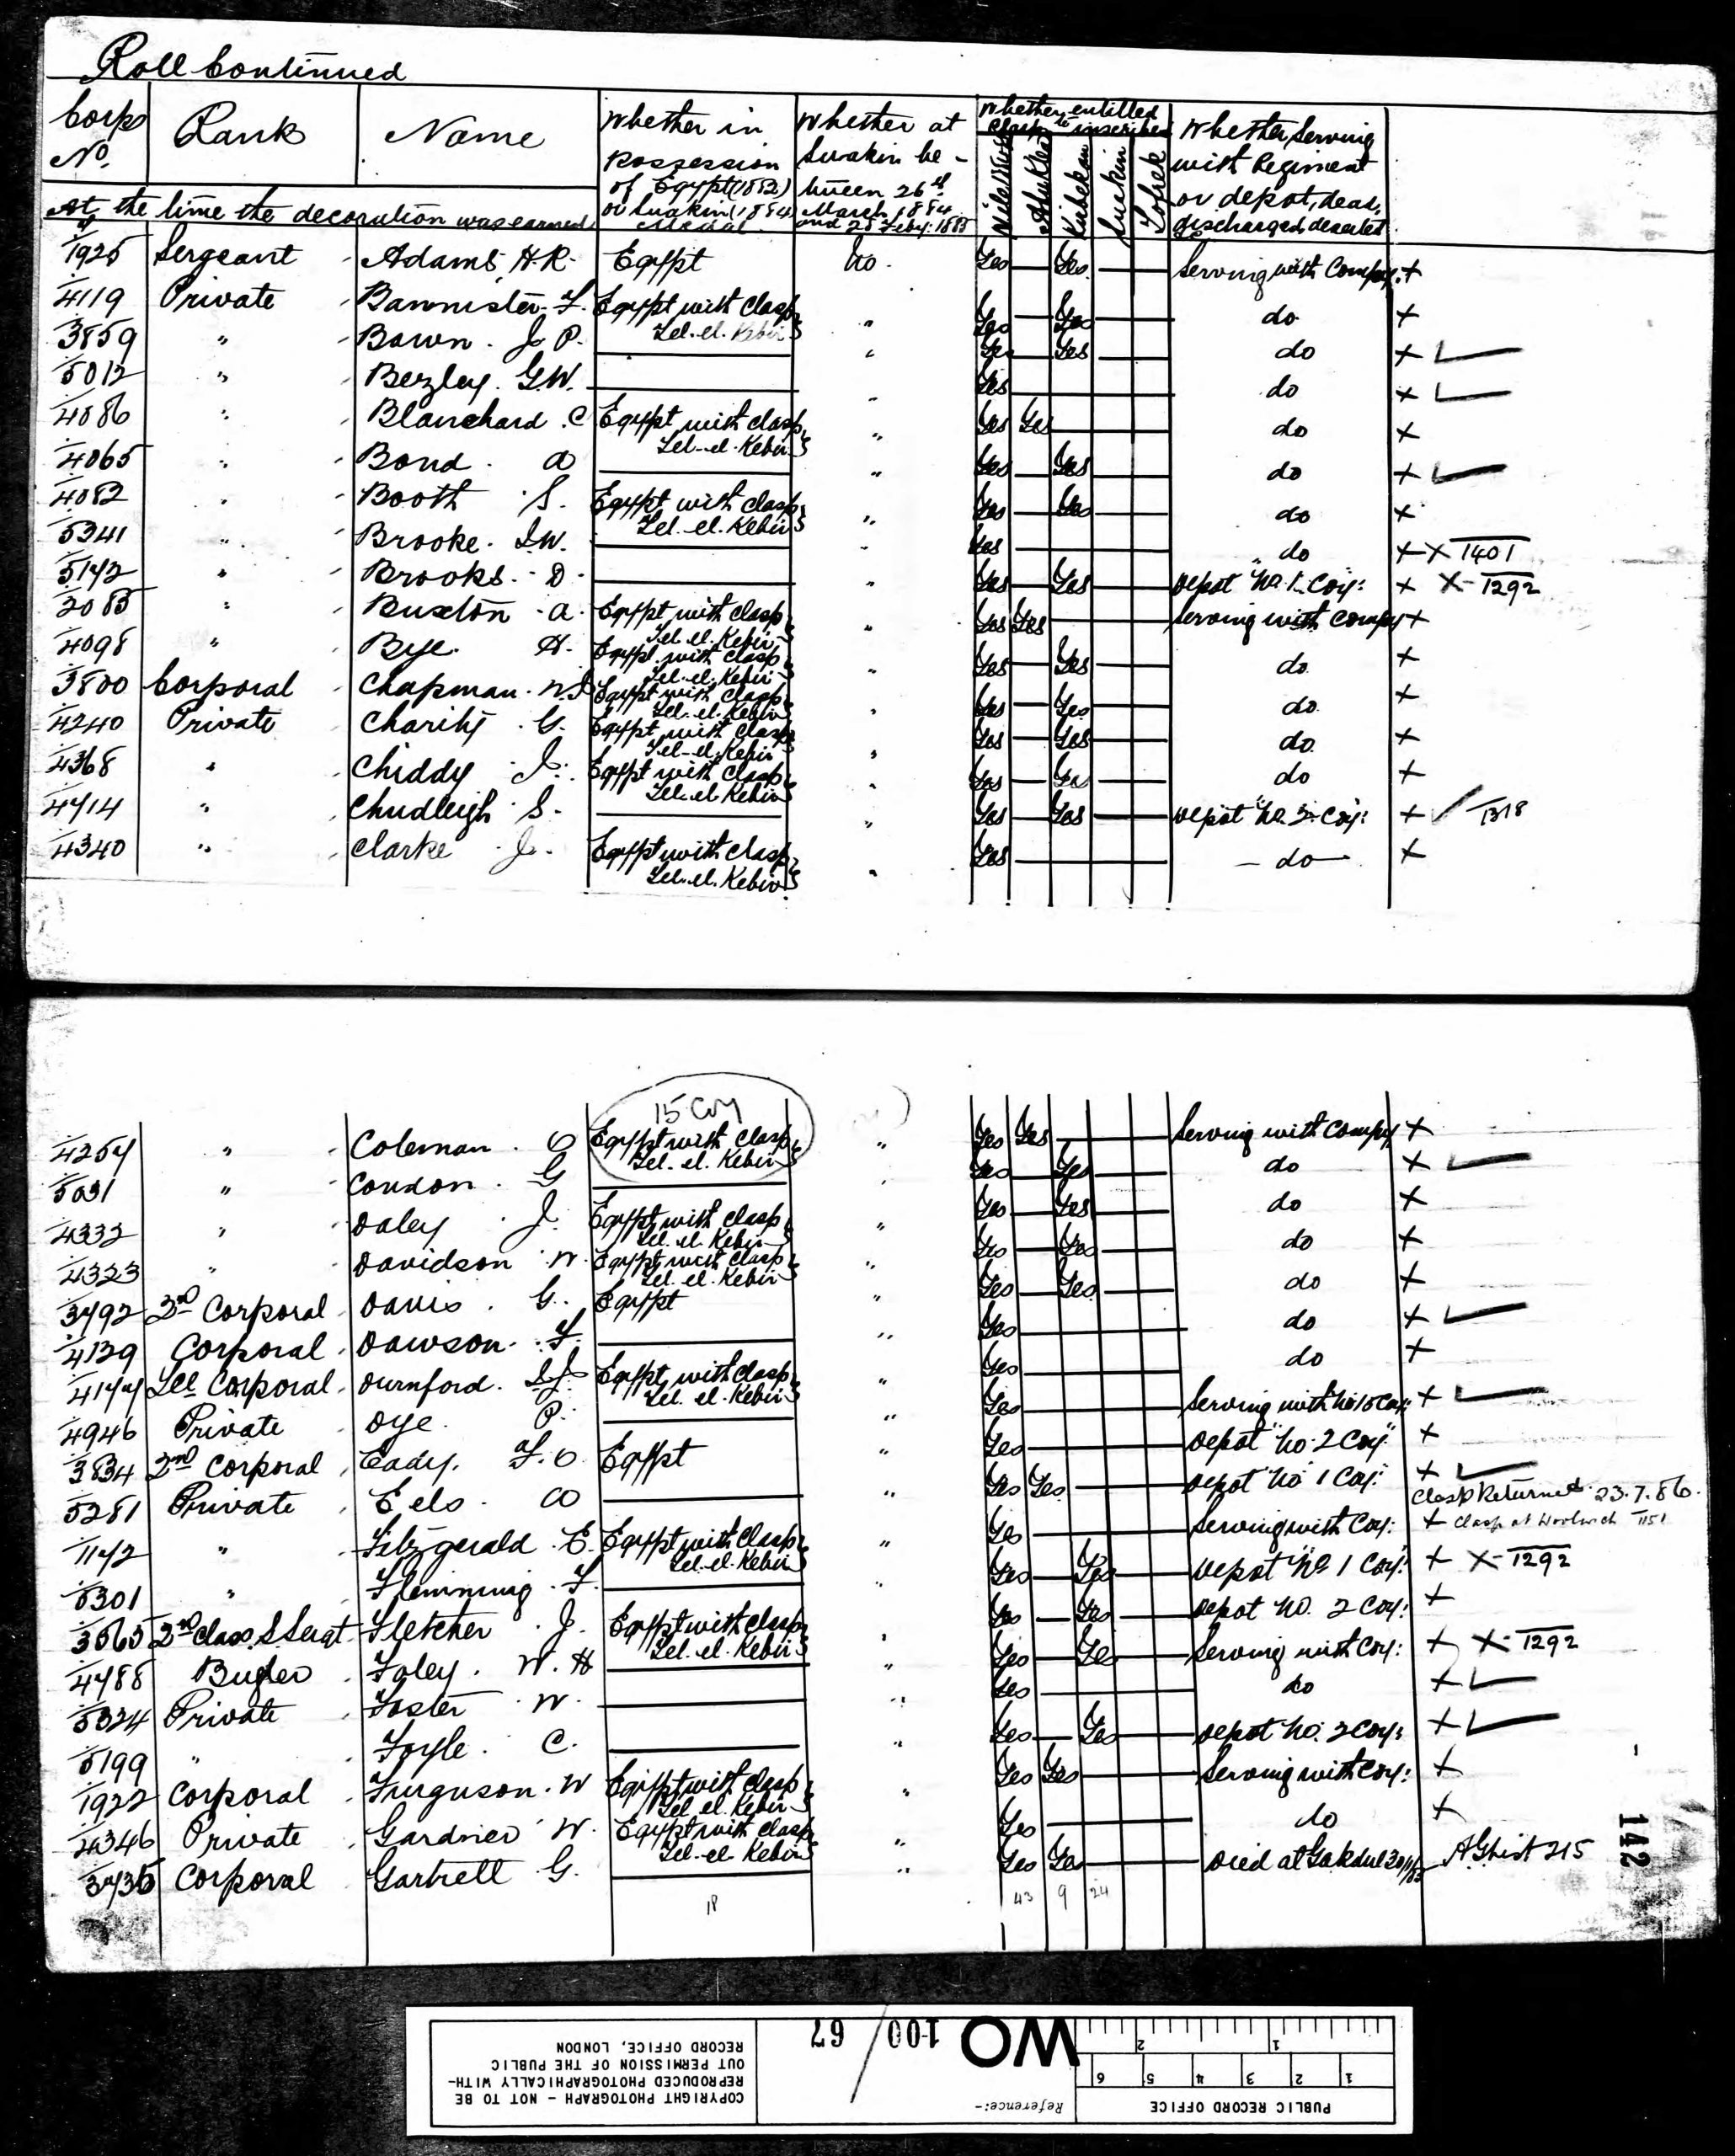 Roll Continued
Corps No. Rank Name Whether in Possession of Egypt (1882) or Suakin (1884) Medal Whether at Suakin between 26th March 1884 and 28 Feby: 1885 Whether entitled to Clasp inscribed Nile Abu Klea Kirbekan Suakin Tofrek Whether Serving with Regiment or depot, dead, discharged, deserted
At the time the decoration was earned
1925 Sergeant Adams H.R. Egypt No. Yes Yes Serving with Compy: +
4119 Private Bannister F. Egypt with Clasp Tel-el-Kebir " Yes Yes do +
3859 " Bown J P. " Yes Yes do +
5012 " Bezley G.W. " Yes do +
4086 " Blanchard C Egypt with clasp Tel-el-Kebir " Yes Yes do +
4065 " Bond a " Yes Yes do +
4082 " Booth S. Egypt with clasp Tel-el-Kebir " Yes Yes do +
5341 " Brooke W. " Yes do + X 1401
5142 " Brooks D. " Yes Yes depot "No. 1 Coy: + X 1292
2085 " Buxton a. Egypt with clasp Tel.el.Kebir " Yes Yes Serving with Compy +
4098 " Bye H. Egypt with clasp Tel-el-Kebir " Yes Yes do. +
3800 Corporal Chapman Egypt with Clasp Tel-el-Kebir " Yes Yes do. +
4240 Private Charity G. Egypt with Clasp Tel-el-Kebir " Yes Yes do. +
4368 " Chiddy J. Egypt with clasp Tel-el-Kebir " Yes Yes do +
4714 " Chudleigh S. " Yes Yes depot Coy: + 1318
4340 " Clarke J. Egypt with Clasp Tel-el-Kebir " Yes - do - +
15 Coy
4254 " Coleman Egypt with Clasp Tel-el-Kebir " Yes Yes Serving with Compy +
5031 " Condon G Yes Yes do +
4332 " Daley J. Egypt with clasp Tel.el.Kebir " Yes Yes do +
4323 " Davidson W. Egypt with clasp Tel.el.Kebir " Yes Yes do +
3792 2nd Corporal Davis G. Egypt " Yes Yes do +
4139 Corporal Dawson F. " Yes do +
Corporal Durnford Egypt with clasp Tel.el.Kebir " Yes do +
4946 Private Dye P. " Yes Serving with No 10 Coy: +
3834 2nd Corporal Eady. Egypt " Yes depot "No. 2 Coy" +
5281 Private Eels a " Yes Yes depot "No 1 Coy: +
Clasp Returned 23.7.86.
1142 " Fitzgerald E. Egypt with Clasp Tel-el-Kebir " Yes Serving with Coy: + Clasp at Woolwich 1151
5301 " Flemming F. Yes Yes depot "No 1 Coy: + X 1292
3565 2nd Class S Sergt Fletcher J. Egypt with clasp Tel-el-Kebir Yes Yes depot No. 2 Coy: +
4488 Bugler Foley W. H " Yes Yes Serving with Coy: + X 1292
5324 Private Foster W. " Yes do +
5199 " Foyle C. " Yes Yes depot No. 2 Coy: +
1922 Corporal Furguson W Egypt with clasp Tel el Kebir " Yes Yes Serving with Coy: +
4346 Private Gardner W. Egypt with clasp Tel-el-Kebir " Yes do +
3735 Corporal Gartrell G. " Yes Yes died at Gakdul AG List 215
18 43 9 24
142
PUBLIC RECORD OFFICE
1 2 3 4 5 6
1 2
Reference:-
WO 100 / 67
COPYRIGHT PHOTOGRAPH - NOT TO BE
REPRODUCED PHOTOGRAPHICALLY WITH-
OUT PERMISSION OF THE PUBLIC
RECORD OFFICE, LONDON